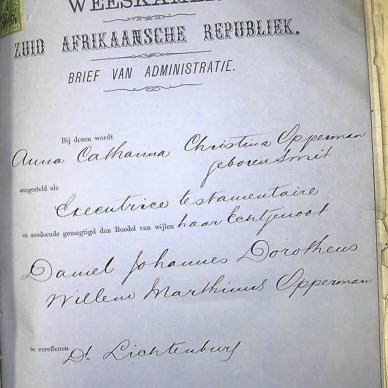 WEESKAMER
ZUID AFRIKAANSCHE REPUBLIEK.
BRIEF VAN ADMINISTRATIE.
Bij dezen wordt
Anna Catharina Christina Opperman
geboren Smit
aangesteld als
Executrice testamentaire
en zoodoende gemagtigd den Boedel van wijlen haar Echtgenoot
Daniel Johannes Dorotheus
Willem Marthinus Opperman
te vereffenen Dt. Lichtenburg